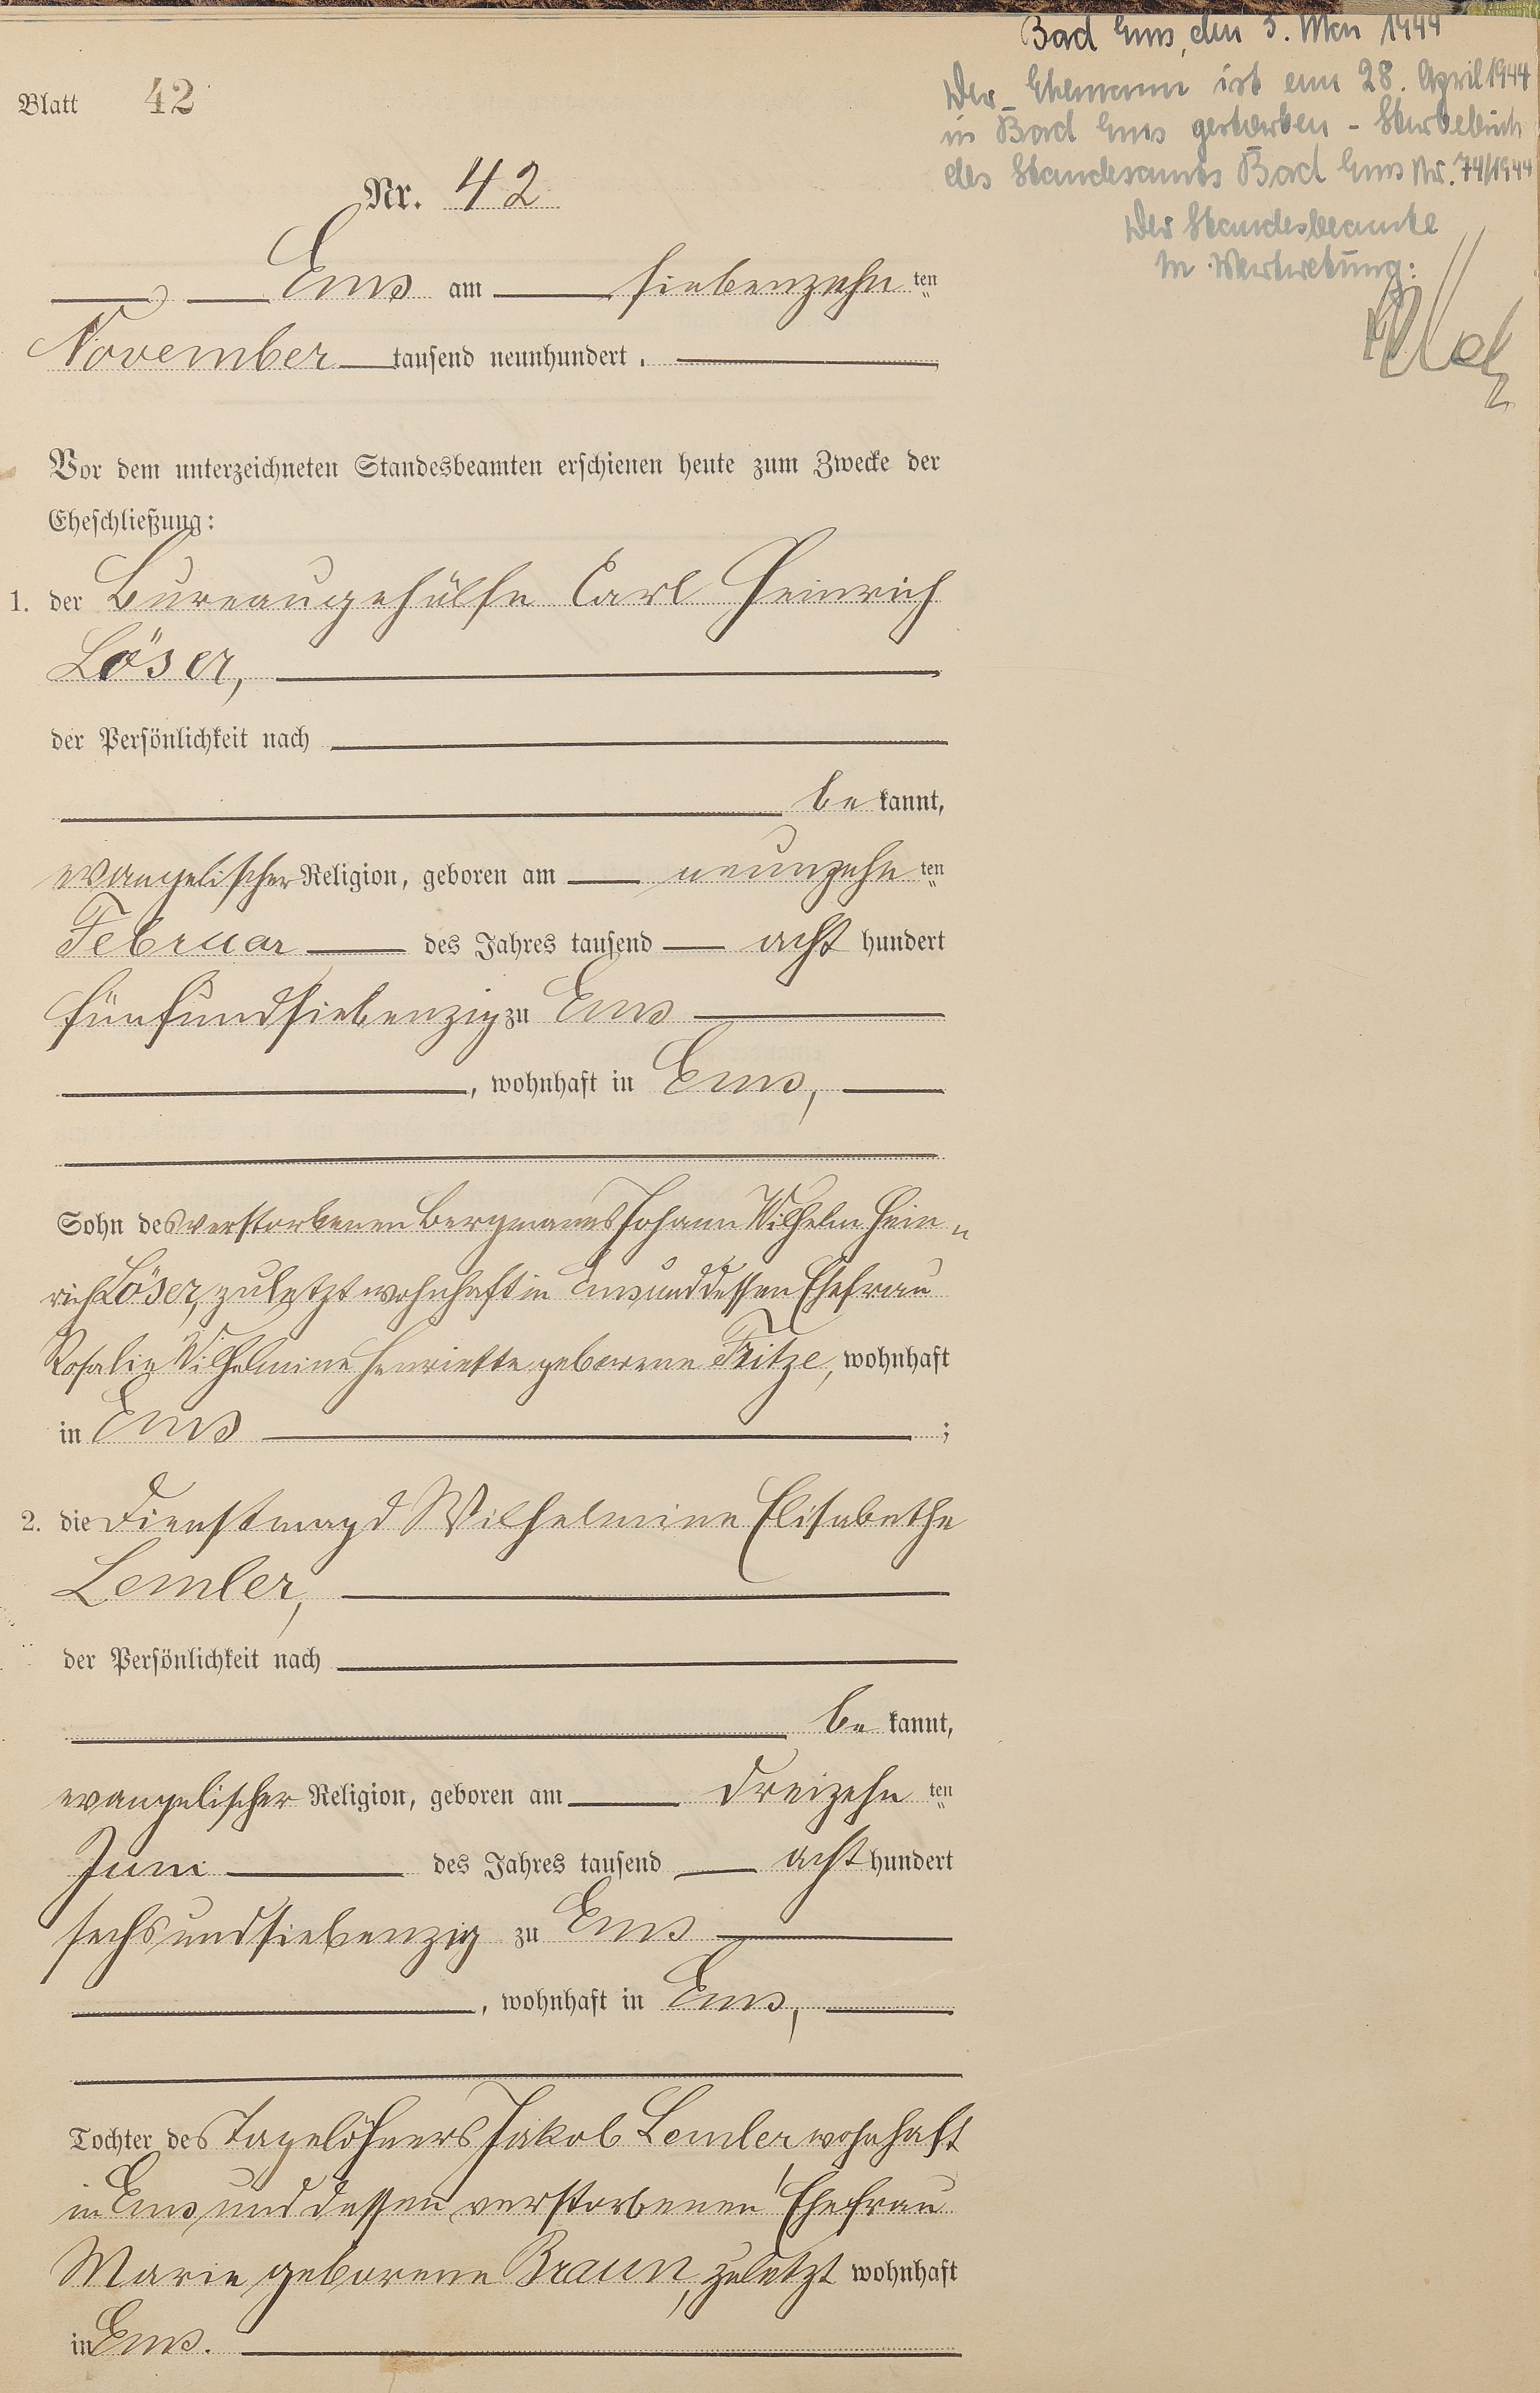 Blatt 42
Nr. 42
Ems am siebenzehn ten
November tausend neunhundert.
Vor dem unterzeichneten Standesbeamten erschienen heute zum Zwecke der
Eheschließung:
1. der Bureaugehülfe Carl Heinrich
Löser,
der Persönlichkeit nach
be kannt,
evangelischer Religion, geboren am neunzehn ten
Februar des Jahres tausend acht hundert
fünfundsiebenzig zu Ems
, wohnhaft in Ems,
Sohn des verstorbenen Bergmanns Johann Wilhelm Hein„
rich Löser, zuletzt wohnhaft in Ems und dessen Ehefrau
Rosalie Wilhelmine Henriette geborene Fritze, wohnhaft
in Ems ;
2. die Dienstmagd Wilhelmine Elisabethe
Lemler,
der Persönlichkeit nach
be kannt,
evangelischer Religion, geboren am dreizehn ten
Juni des Jahres tausend acht hundert
sechsundsiebenzig zu Ems
, wohnhaft in Ems,
Tochter des Tagelöhners Jakob Lemler wohnhaft
in Ems und dessen verstorbenen Ehefrau
Marie geborene Braun, zuletzt wohnhaft
in Ems.
Bad Ems, den 3. Mai 1944
Der Ehemann ist am 28. April 1944
in Bad Ems gestorben - Sterbebuch
des Standesamts Bad Ems Nr. 74/1944
Der Standesbeamte
In Vertretung: